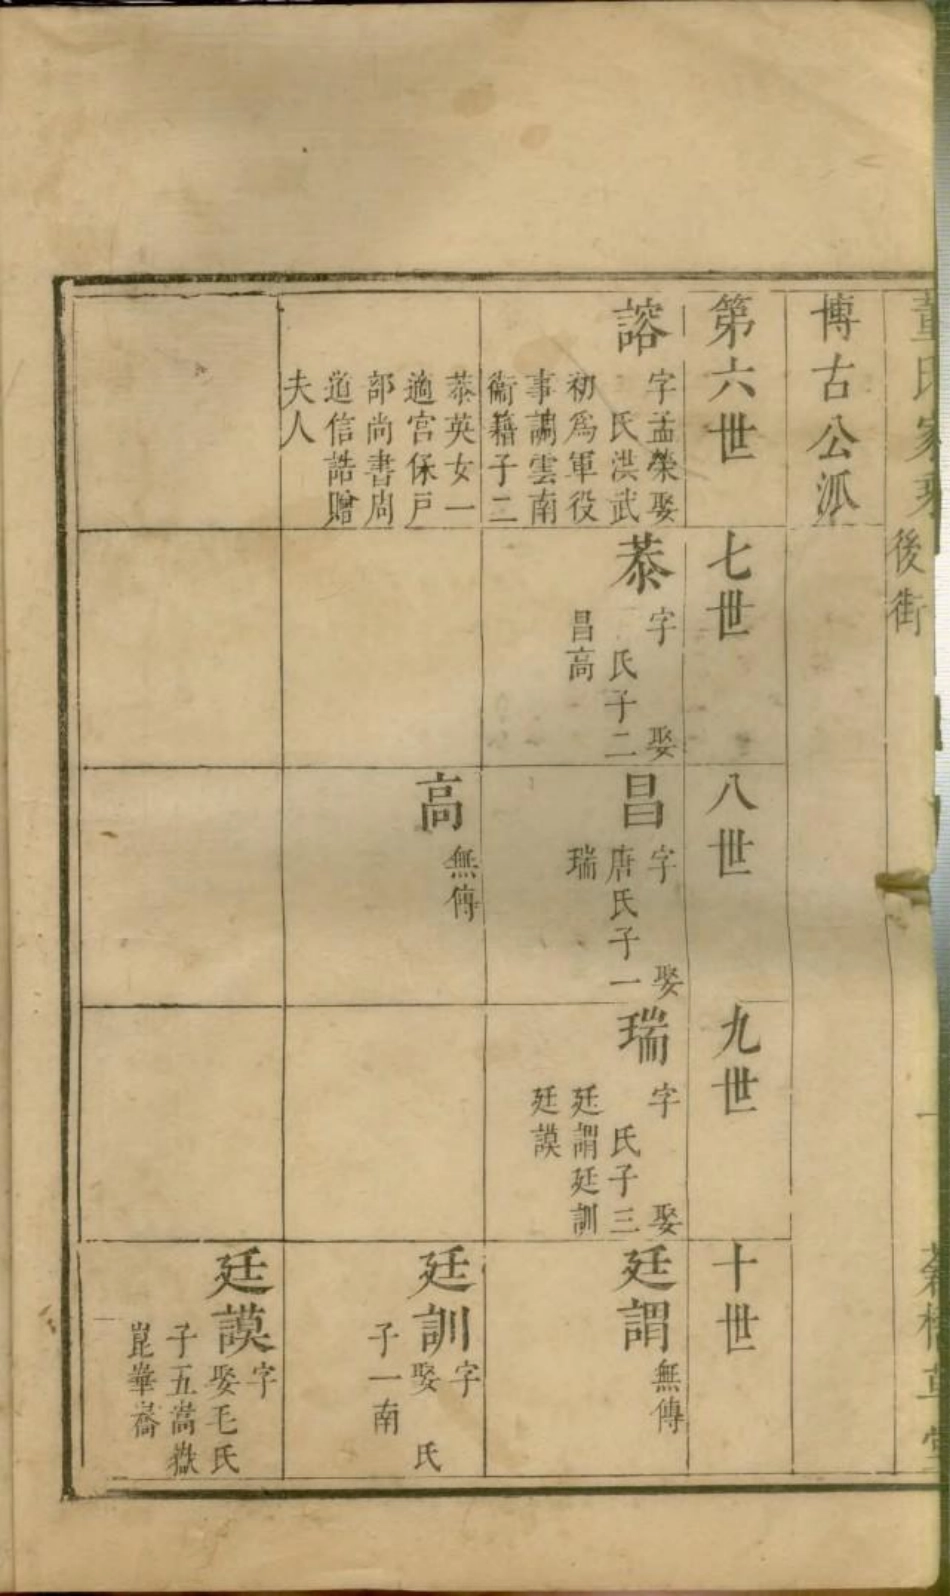 董氏家乘
後街
博古公派
第六世
七世
八世
九世
十世
諮
字孟榮娶
氏洪武
初爲軍役
事謫雲南
衞籍子二
菾英女一
適宮保戶
部尚書周
道信誥贈
夫人
菾
字　娶
氏子二
昌高
昌
字　娶
唐氏子一
瑞
高
無傳
瑞
字　娶
氏子三
廷謂廷訓
廷謨
廷謂
無傳
廷訓
字
娶　氏
子一南
廷謨
字
娶毛氏
子五嵩嶽
崑華喬